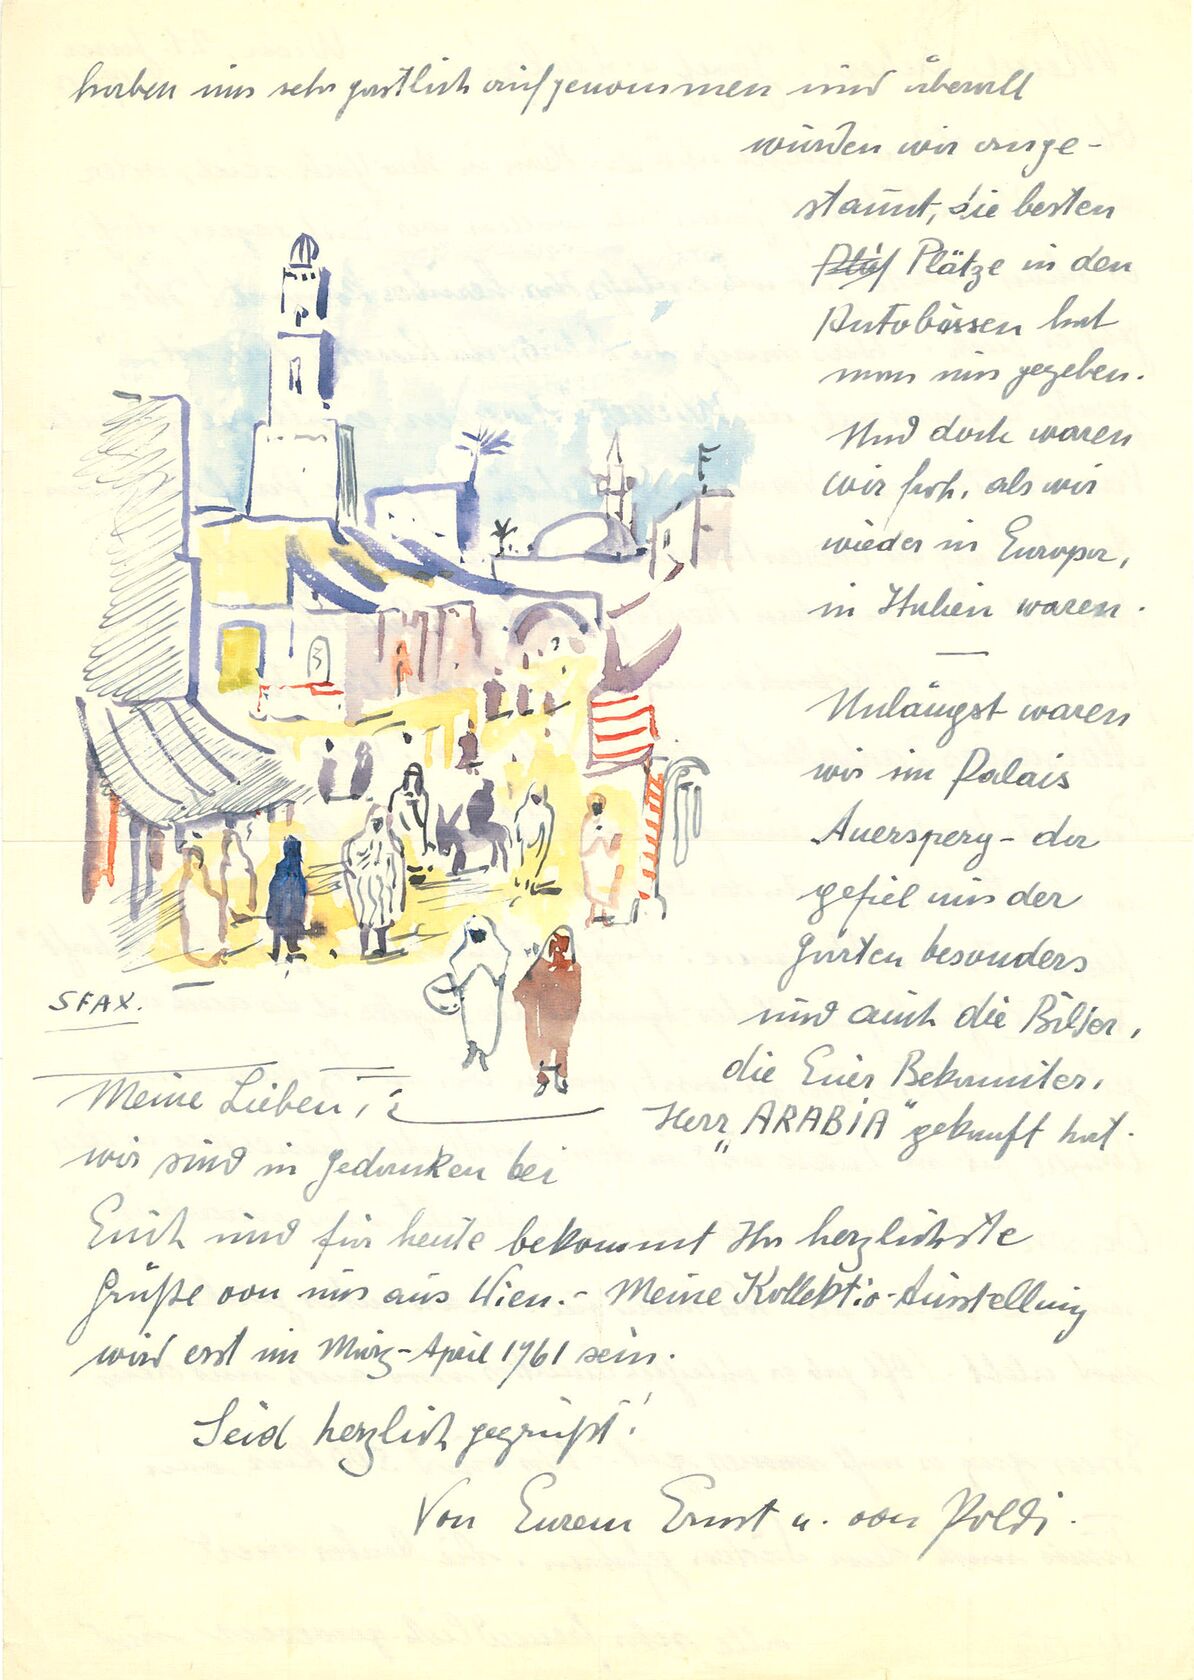 haben uns sehr gastlich aufgenommen und überall
wurden wir ange-
staunt, die besten
Plätze in den
Autobussen hat
man uns gegeben.
Und doch waren
wir froh, als wir
wieder in Europa,
in Italien waren.
Unlängst waren
wir im Palais
Auersperg - da
gefiel uns der
Garten besonders
und auch die Bilder,
die Euer Bekannter,
Herr „ARABIA" gekauft hat.
SFAX.
Meine Lieben,
wir sind in Gedanken bei
Euch und für heute bekommt Ihr herzlichste
Grüße von uns aus Wien. - Meine Kollektiv-Ausstellung
wird erst im März-April 1961 sein.
Seid herzlich gegrüßt!
Von Eurem Ernst u. von Poldi.